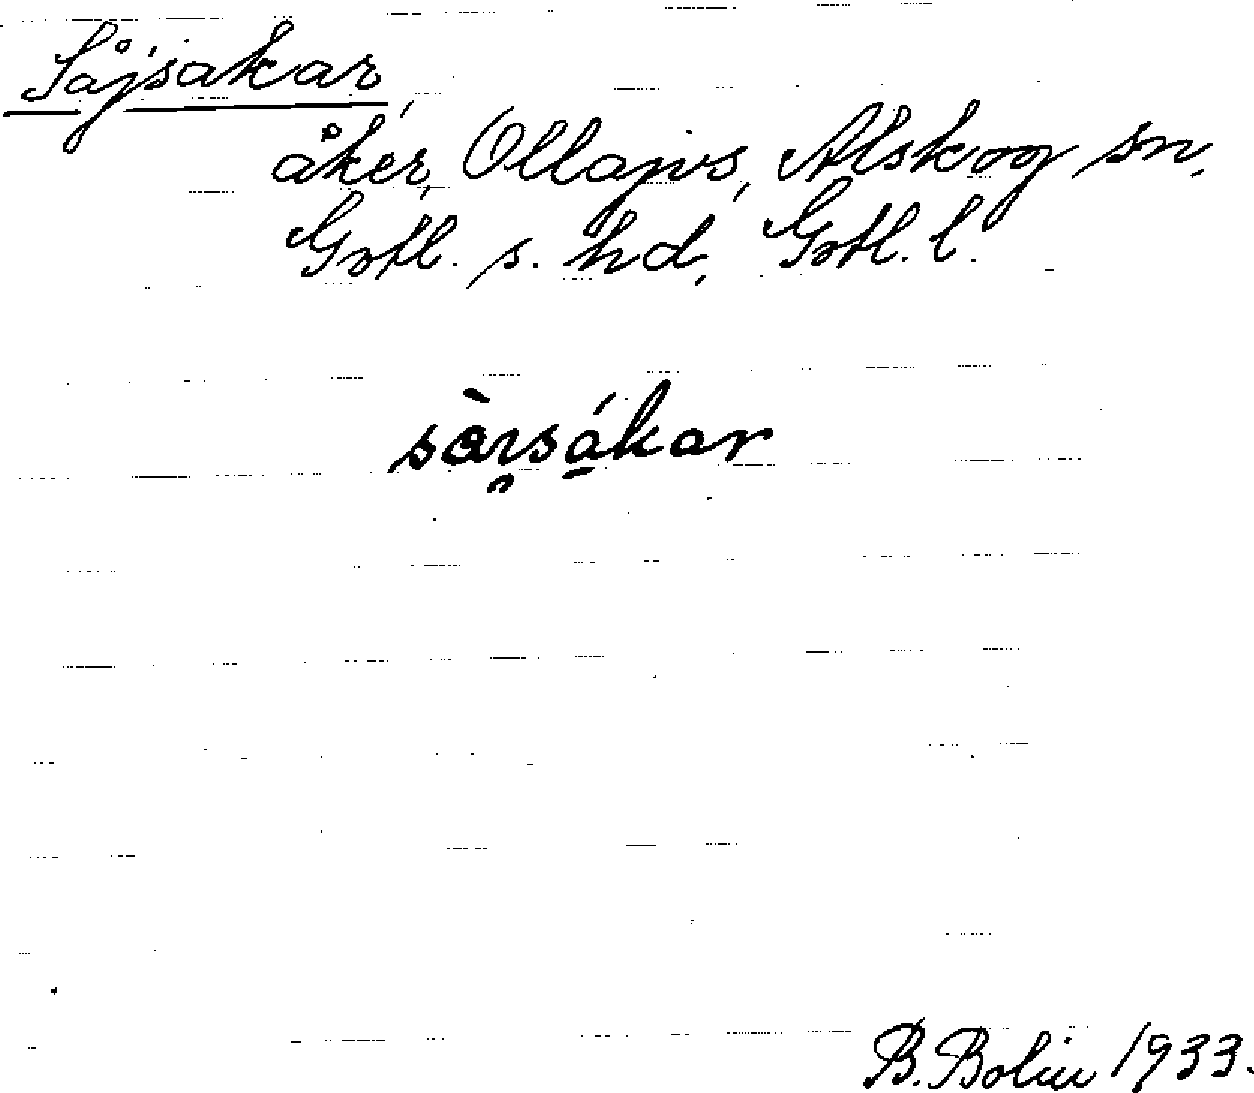 Såjsakar,
åker, Ollajvs, Alskog sn,
Gotl. s. hd, Gotl. l.
B. Bolin 1933.